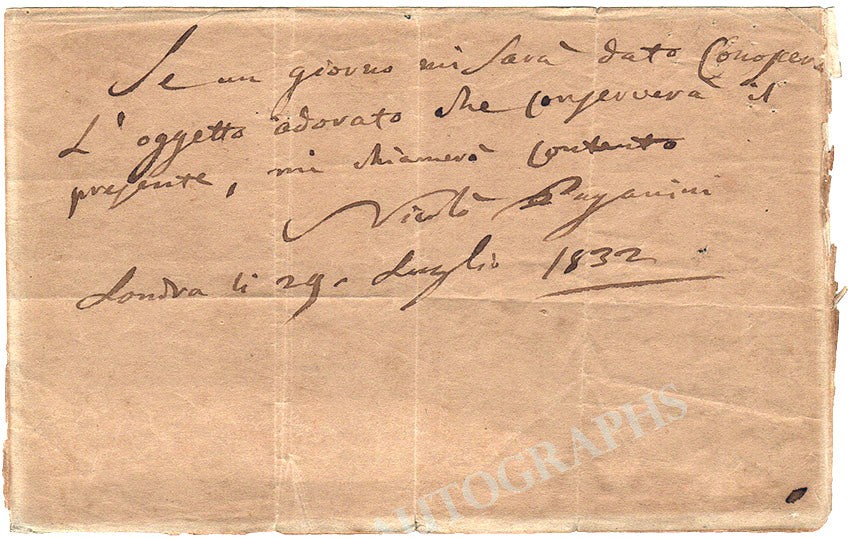 Se un giorno mi sarà dato Conoscere
L'oggetto adorato che conserverà il
presente, mi chiamerò contento
Nicolò Paganini
Londra li 29. Luglio 1832
AUTOGRAPHS